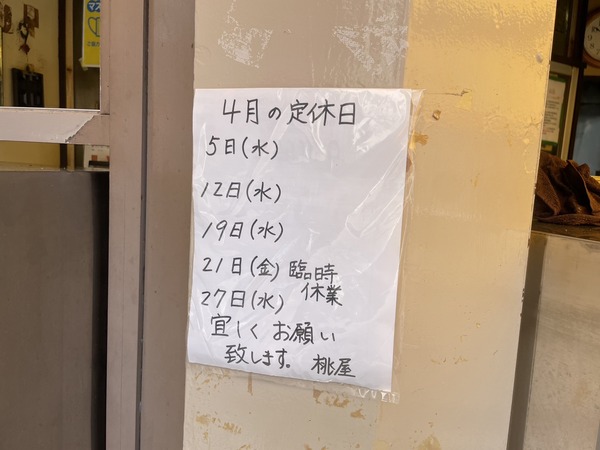 4月の定休日
5日(水)
12日(水)
19日(水)
21日(金) 臨時
27日(水) 休業
宜しくお願い
致します。 桃屋